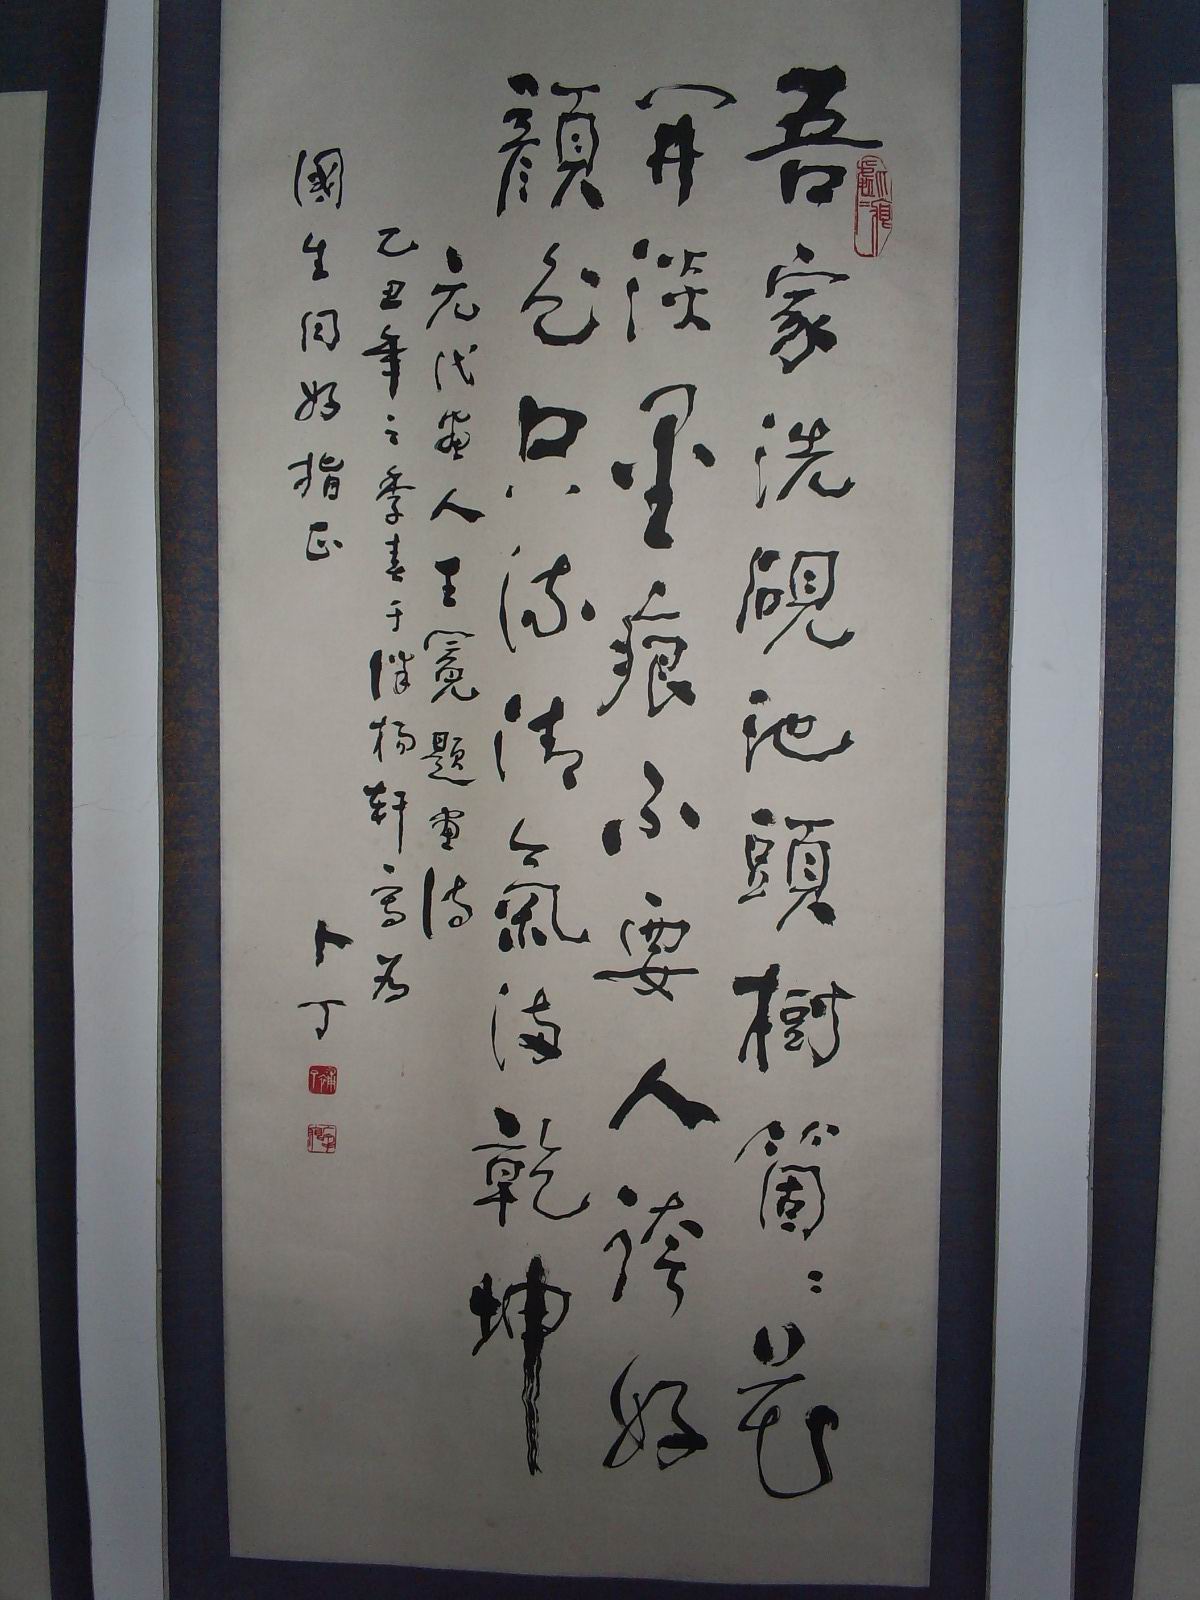 吾家洗硯池頭樹箇〻花
開淡墨痕不要人誇好
顏色只流清氣滿乾坤
元代畫人王冕題畫诗
乙丑年之季春于 楊軒寫为
國生同好指正
卜丁